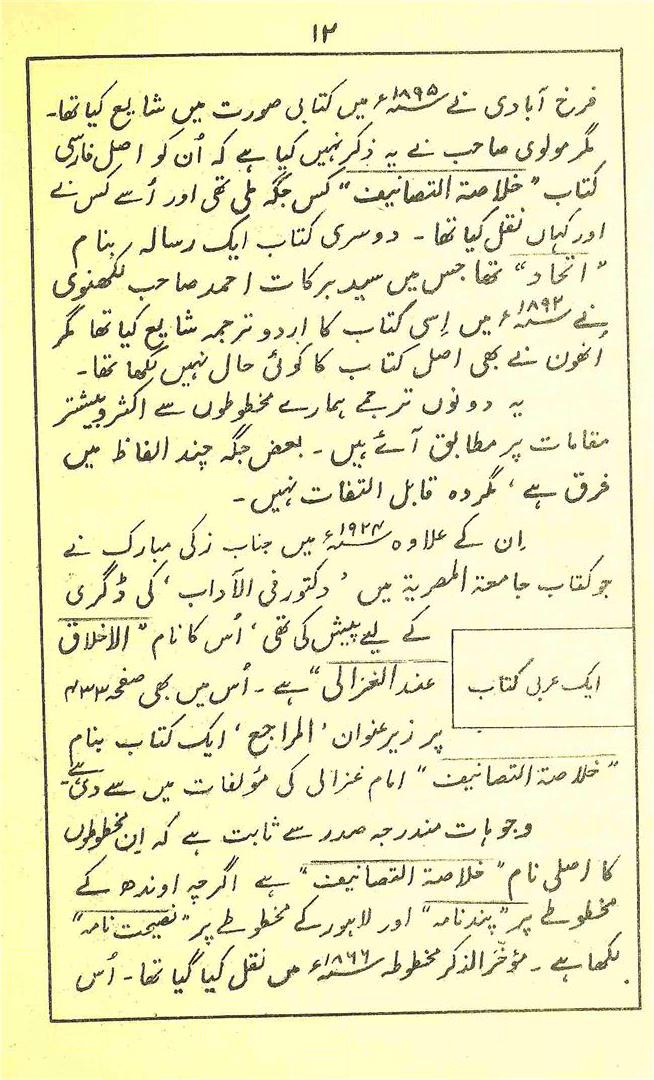 ۱۲
فرخ آبادی نے ۱۸۹۵ء میں کتابی صورت میں شایع کیا تھا۔
مگر مولوی صاحب نے یہ ذکر نہیں کیا ہے کہ اُن کو اصل فارسی
کتاب "خلاصۃ التصانیف" کس جگہ ملی تھی اور اُسے کس نے
اور کہاں نقل کیا تھا۔ دوسری کتاب ایک رسالہ بنام
"اتحاد" تھا جس میں سید برکات احمد صاحب لکھنوی
نے ۱۸۹۲ء میں اِسی کتاب کا اردو ترجمہ شایع کیا تھا مگر
اُنھون نے بھی اصل کتاب کا کوئی حال نہیں لکھا تھا۔
یہ دونوں ترجمے ہمارے مخطوطوں سے اکثر و بیشتر
مقامات پر مطابق آئے ہیں۔ بعض جگہ چند الفاظ میں
فرق ہے، مگر وہ قابل التفات نہیں۔
اِن کے علاوہ ۱۹۲۴ء میں جناب زکی مبارک نے
جو کتاب جامعۃ المصریۃ میں 'دکتور فی الآداب' کی ڈگری
کے لیے پیش کی تھی، اُس کا نام "الاخلاق
عند الغزالی" ہے۔ اُس میں بھی صفحہ ۴۳۳
ایک عربی کتاب
پر زیر عنوان 'المراجع' ایک کتاب بنام
"خلاصۃ التصانیف" امام غزالی کی مؤلفات میں سے دی ہے۔
وجوہات مندرجہ صدر سے ثابت ہے کہ اِن مخطوطوں
کا اصلی نام "خلاصۃ التصانیف" ہے اگرچہ اوندھ کے
مخطوطے پر "پندنامہ" اور لاہور کے مخطوطے پر "نصیحت نامہ"
لکھا ہے۔ مؤخّر الذکر مخطوطہ ۱۸۶۶ء میں نقل کیا گیا تھا۔ اُس